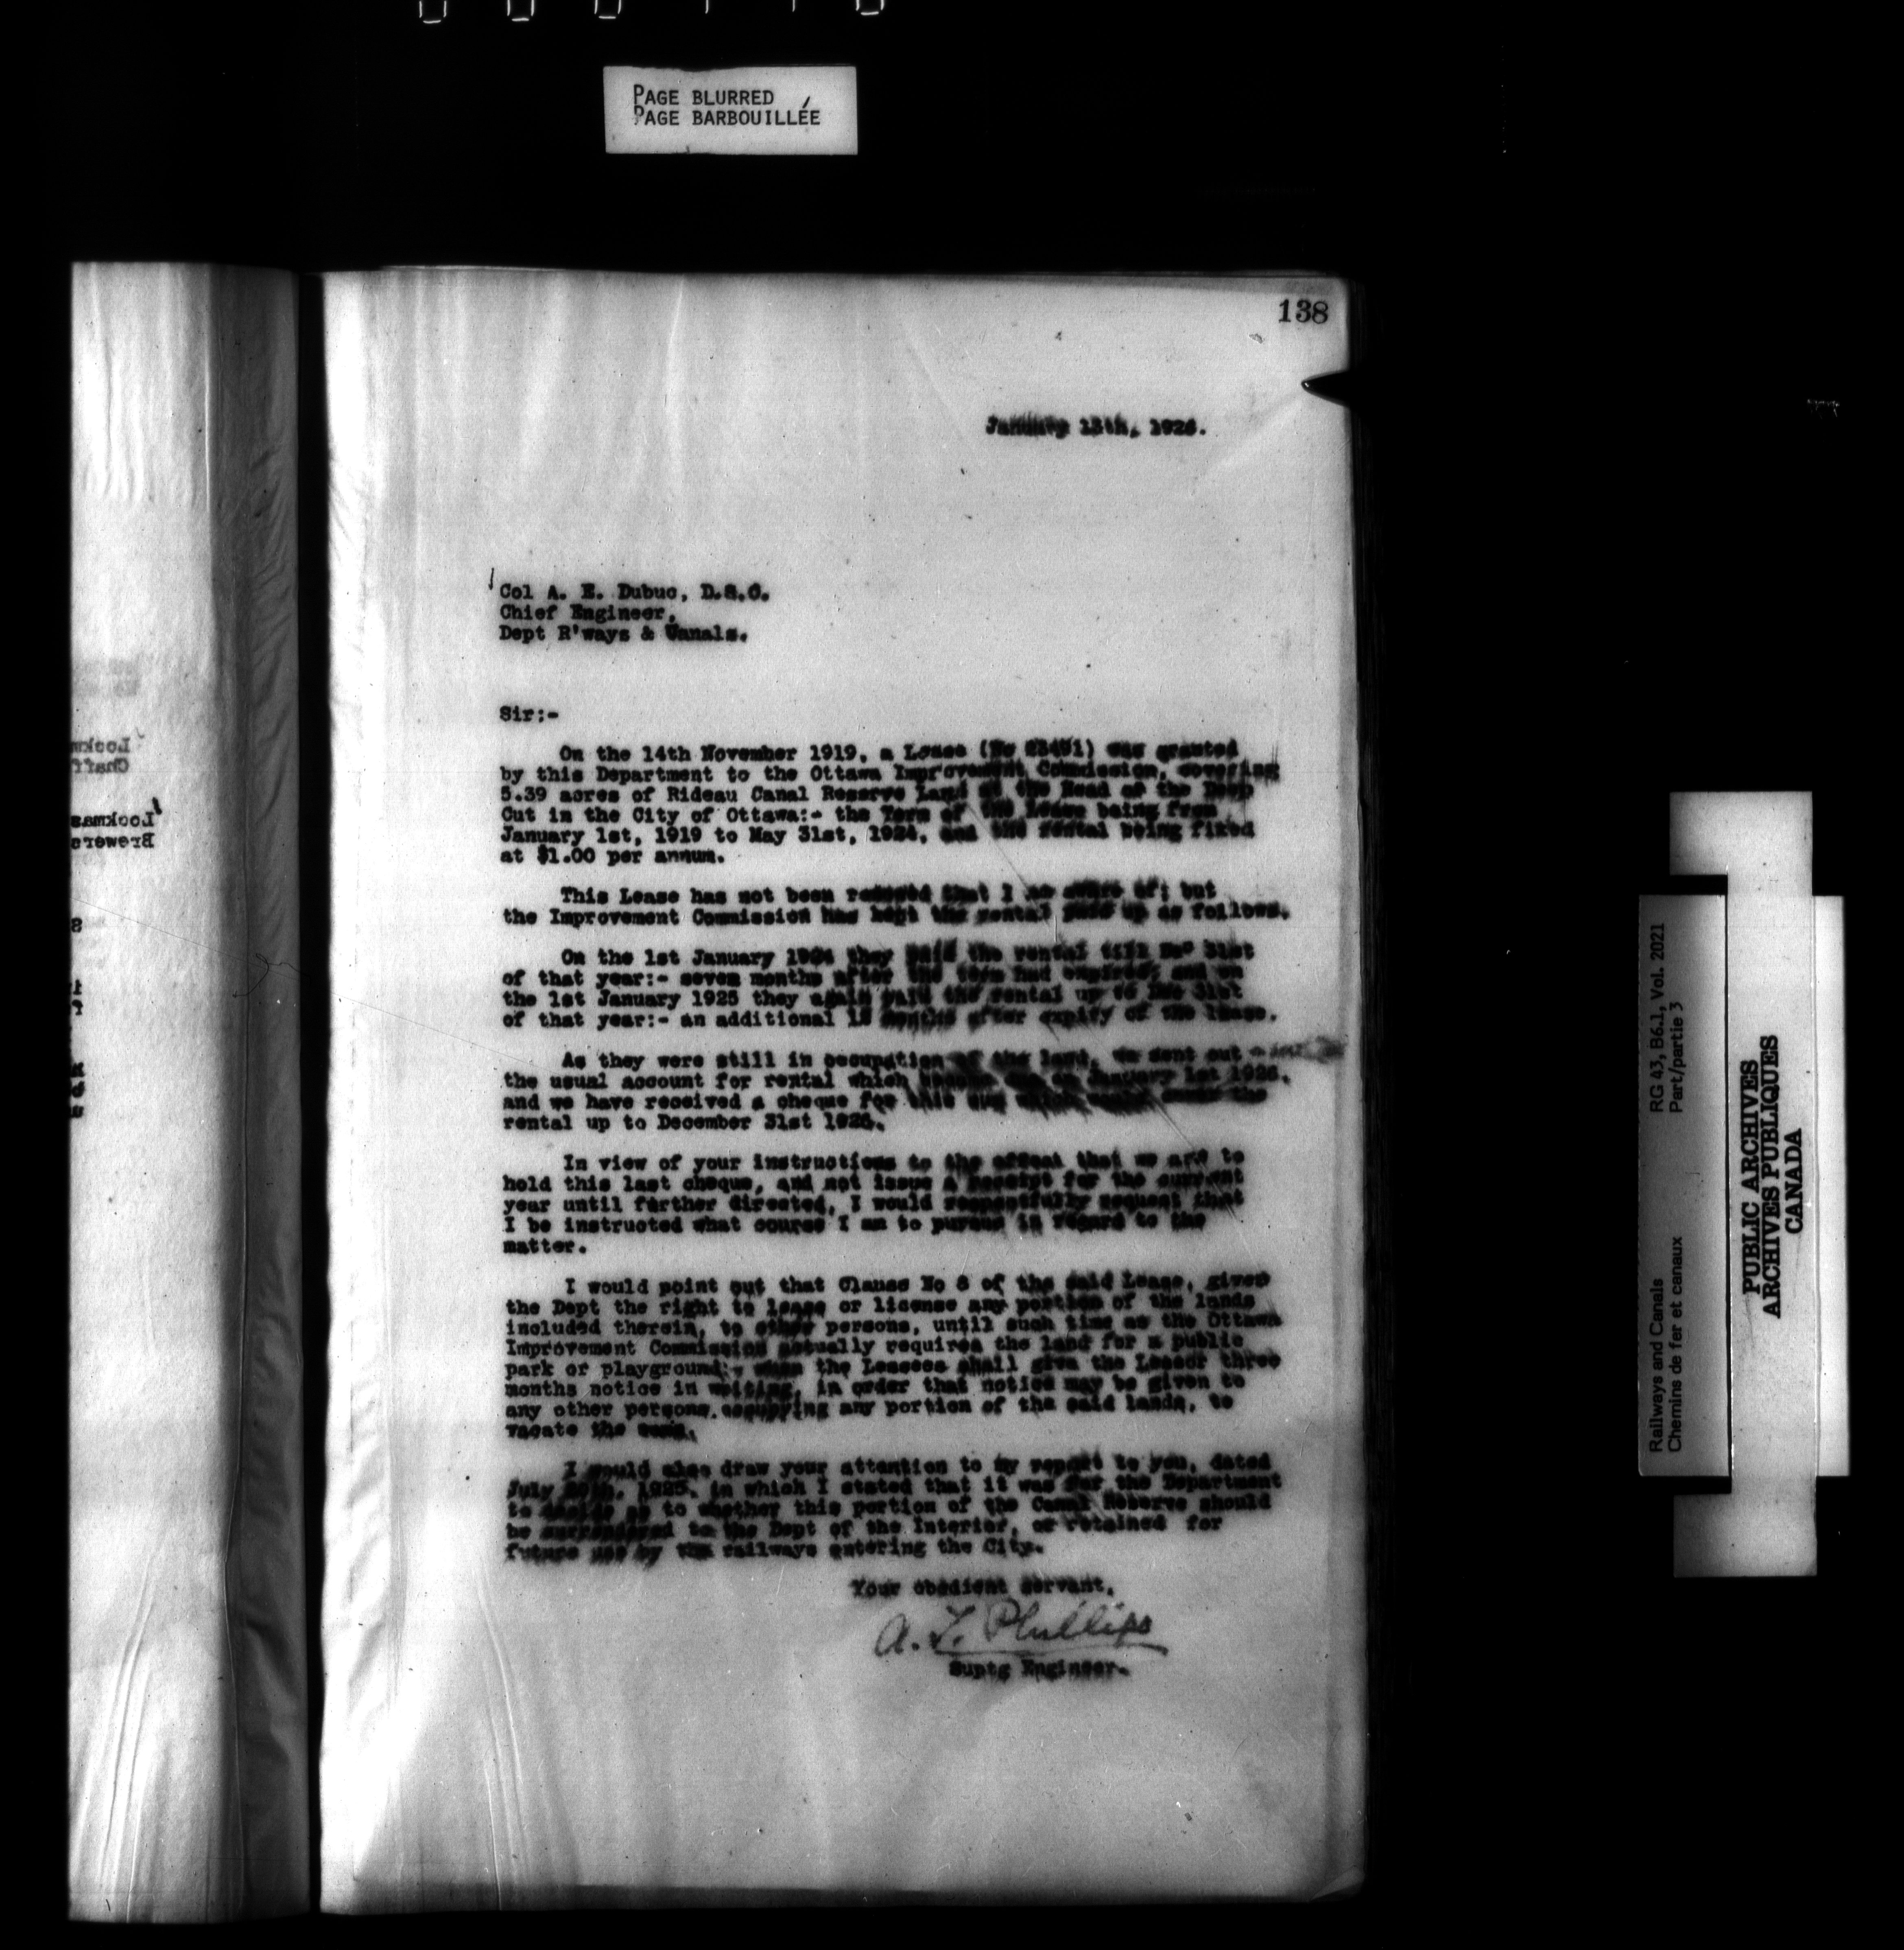 PAGE BLURRED
PAGE BARBOUILLÉE
138
January 13th, 1926.
Col A. E. Dubuc, D.S.O.
Chief Engineer,
Dept R'ways & Canals.
Sir:-
On the 14th November 1919, a Lease (No 23491) was granted
by this Department to the Ottawa Improvement Commission, covering
5.39 acres of Rideau Canal Reserve Land at the Head of the Deep
Cut in the City of Ottawa:- the Term of the Lease being from
January 1st, 1919 to May 31st, 1924, and the rental being fixed
at $1.00 per annum.
This Lease has not been renewed that I am aware of; but
the Improvement Commission has kept the rental paid up as follows.
On the 1st January 1924 they paid the rental till Dec 31st
of that year:- seven months after the term had expired; and on
the 1st January 1925 they again paid the rental up to Dec 31st
of that year:- an additional 12 months after expiry of the lease.
As they were still in occupation of the land, we sent out
the usual account for rental which became due on January 1st 1926,
and we have received a cheque for this sum which would cover the
rental up to December 31st 1926.
In view of your instructions to the effect that we are to
hold this last cheque, and not issue a receipt for the current
year until further directed, I would respectfully request that
I be instructed what course I am to pursue in regard to the
matter.
I would point out that Clause No 8 of the said Lease, gives
the Dept the right to lease or license any portion of the lands
included therein, to other persons, until such time as the Ottawa
Improvement Commission actually requires the land for a public
park or playground;- when the Lessees shall give the Lessor three
months notice in writing, in order that notice may be given to
any other persons occupying any portion of the said lands, to
vacate the same.
I would also draw your attention to my report to you, dated
July 20th, 1925, in which I stated that it was for the Department
to decide as to whether this portion of the Canal Reserve should
be surrendered to the Dept of the Interior, or retained for
future use by the railways entering the City.
Your obedient servant,
A. T. Phillips
Suptg Engineer.
Railways and Canals RG 43, B6.1, Vol. 2021
Chemins de fer et canaux Part/partie 3
PUBLIC ARCHIVES
ARCHIVES PUBLIQUES
CANADA